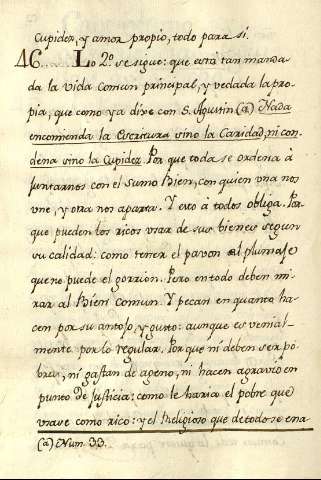 Cupidez, y amor propio, todo para sí.
46... Lo 2º se sigue: que está tan manda
da la vida Comun principal, y vedada la pro
pia, que como ya dixe con S. Agustin (a) Nada
encomienda la Escritura sino la Caridad, ni con
dena sino la Cupidez. Por que toda se ordena à
juntarnos con el Sumo Bien, con quien una nos
une, y otra nos aparta. Y esto à todos obliga. Por
que pueden los ricos usar de sus bienes segun
su calidad: como tener el pavon el plumaje
que no puede el gorrion. Pero en todo deben mi
rar al Bien Comun. Y pecan en quanto ha
cen por su antojo, y gusto: aunque es venial-
mente por lo regular. Porque ni deben ser po
bres, ni gastan de ageno, ni hacen agravio en
punto de Justicia: como le haria el pobre que
usase como rico: y el Religioso que de todo se ena
(a) Num 33.